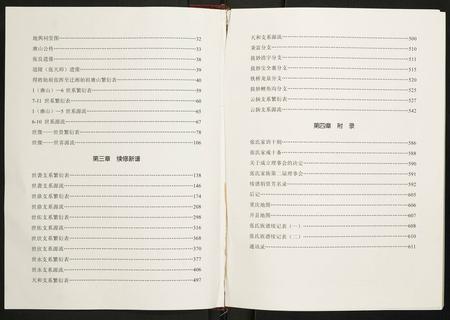 地舆祠茔图 32
唐山公传 33
张良遗像 38
道陵（张天师）遗像 39
得姓始祖役挥至迁湘始祖唐山繁衍表 40
1（唐山）—6 世系繁衍表 59
7-11 世系繁衍表 60
1（唐山）—5 世系源流 65
6-10 世系源流 67
世俊——世贵繁衍表 78
世俊——世富源流 106
第三章 续修新谱
世袭支系繁衍表 138
世袭支系源流 146
世鼎支系繁衍表 174
世鼎支系源流 208
世佑支系繁衍表 298
世佑支系源流 316
世钦支系繁衍表 368
世钦支系源流 370
世永支系繁衍表 377
世永支系源流 406
天和支系繁衍表 497
天和支系源流 500
兼富分支 510
拔妙清字分支 511
拔妙安全寨分支 515
铁桥龙泉分支 520
拔妙鲤鱼沟分支 525
云扬支系繁衍表 527
云扬支系源流 542
第四章 附 录
张氏家训十则 586
张氏家戒十条 588
关于成立理事会的决定 590
张氏家族第二届理事会 591
续谱捐资芳名录 592
后记 605
重庆地图 606
开县地图 607
张氏族谱续记表（一） 608
张氏族谱续记表（二） 610
通讯录 611